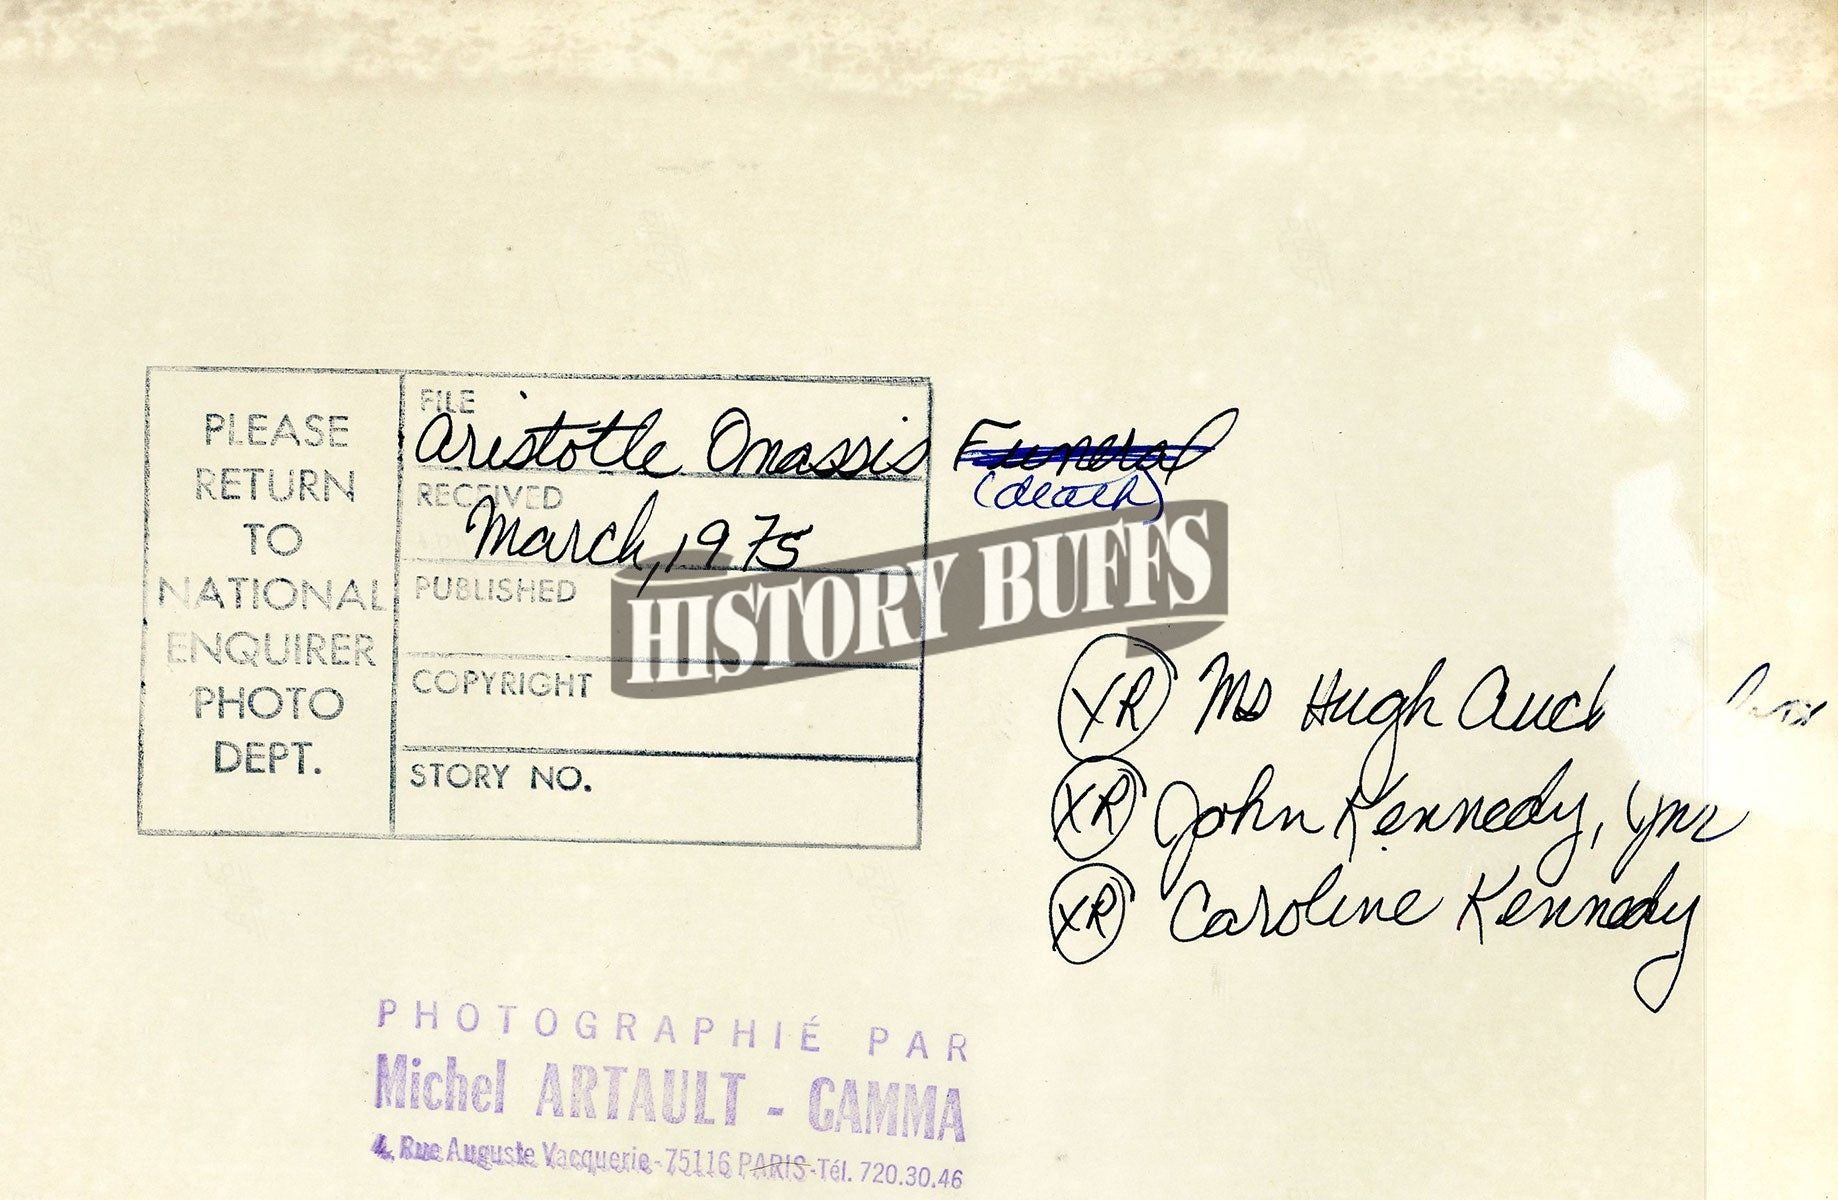 PLEASE
RETURN
TO
NATIONAL
ENQUIRER
PHOTO
DEPT.
FILE
Aristotle Onassis Funeral
(death)
RECEIVED
March, 1975
PUBLISHED
COPYRIGHT
STORY NO.
HISTORY BUFFS
XR Ms Hugh Auch
XR John Kennedy, Jnr
XR Caroline Kennedy
PHOTOGRAPHIÉ PAR
Michel ARTAULT - GAMMA
4, Rue Auguste Vacquerie - 75116 PARIS - Tél. 720.30.46